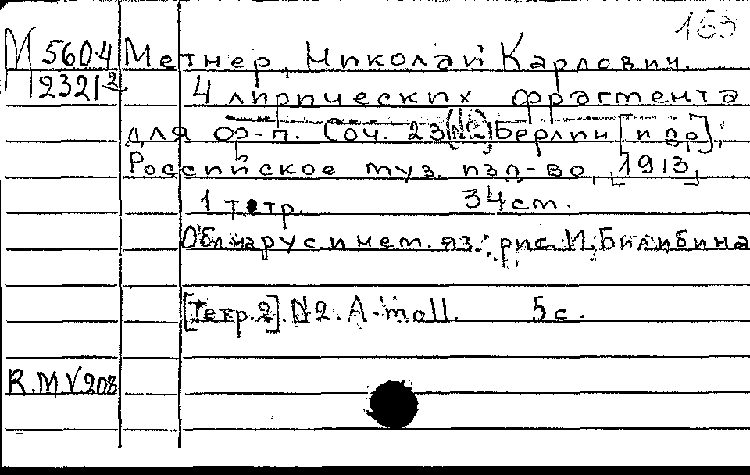 163
М 560-4 Метнер, Николай Карлович.
12321-2 4 лирических фрагмента
для ф-п. Соч. 23 (№2) Берлин [и др],
Российское муз. изд-во, [1913]
1 тетр. 34 cm.
Обл. на рус и нем. яз.: рис. И. Билибина
[Тетр. 2]. № 2. A-moll. 5 с.
R.M.V 208